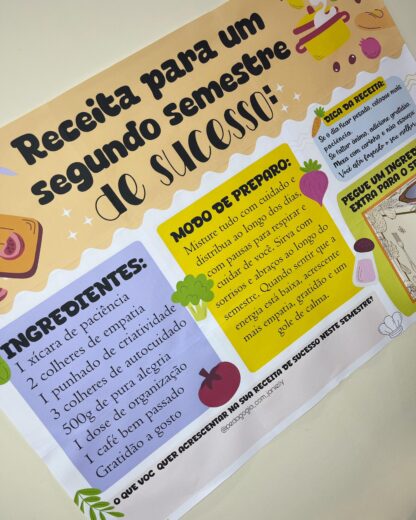 Receita para um
segundo semestre
de sucesso:
INGREDIENTES:
1 xícara de paciência
2 colheres de empatia
1 punhado de criatividade
3 colheres de autocuidado
500g de pura alegria
1 dose de organização
1 café bem passado
Gratidão a gosto
MODO DE PREPARO:
Misture tudo com cuidado e
distribua ao longo dos dias,
com pausas para respirar e
cuidar de você. Sirva com
sorrisos e abraços ao longo do
semestre. Quando sentir que a
energia está baixa, acrescente
mais empatia, gratidão e um
gole de calma.
DICA DA RECEITA:
Se o dia ficar pesado, coloque mais
paciência.
Se faltar ânimo, adicione gratidão.
Mexa com carinho e não esqueça:
Você está fazendo o seu melhor
PEGUE UM INGRED
EXTRA PARA O SE
O QUE VOC QUER ACRESCENTAR NA SUA RECEITA DE SUCESSO NESTE SEMESTRE?